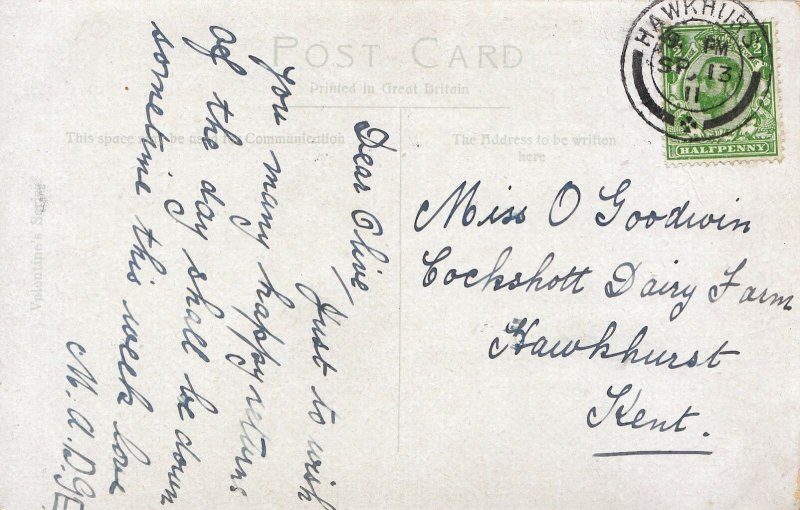 POST CARD
Printed in Great Britain
This space may be used for Communication
The Address to be written
here
Valentine's Series
HAWKHURST
PM
SP. 13
11
HALFPENNY
Dear Olive,
Just to wish
you many happy returns
of the day shall be down
sometime this week love
M. A. D.
Miss O Goodwin
Cockshott Dairy Farm
Hawkhurst
Kent.